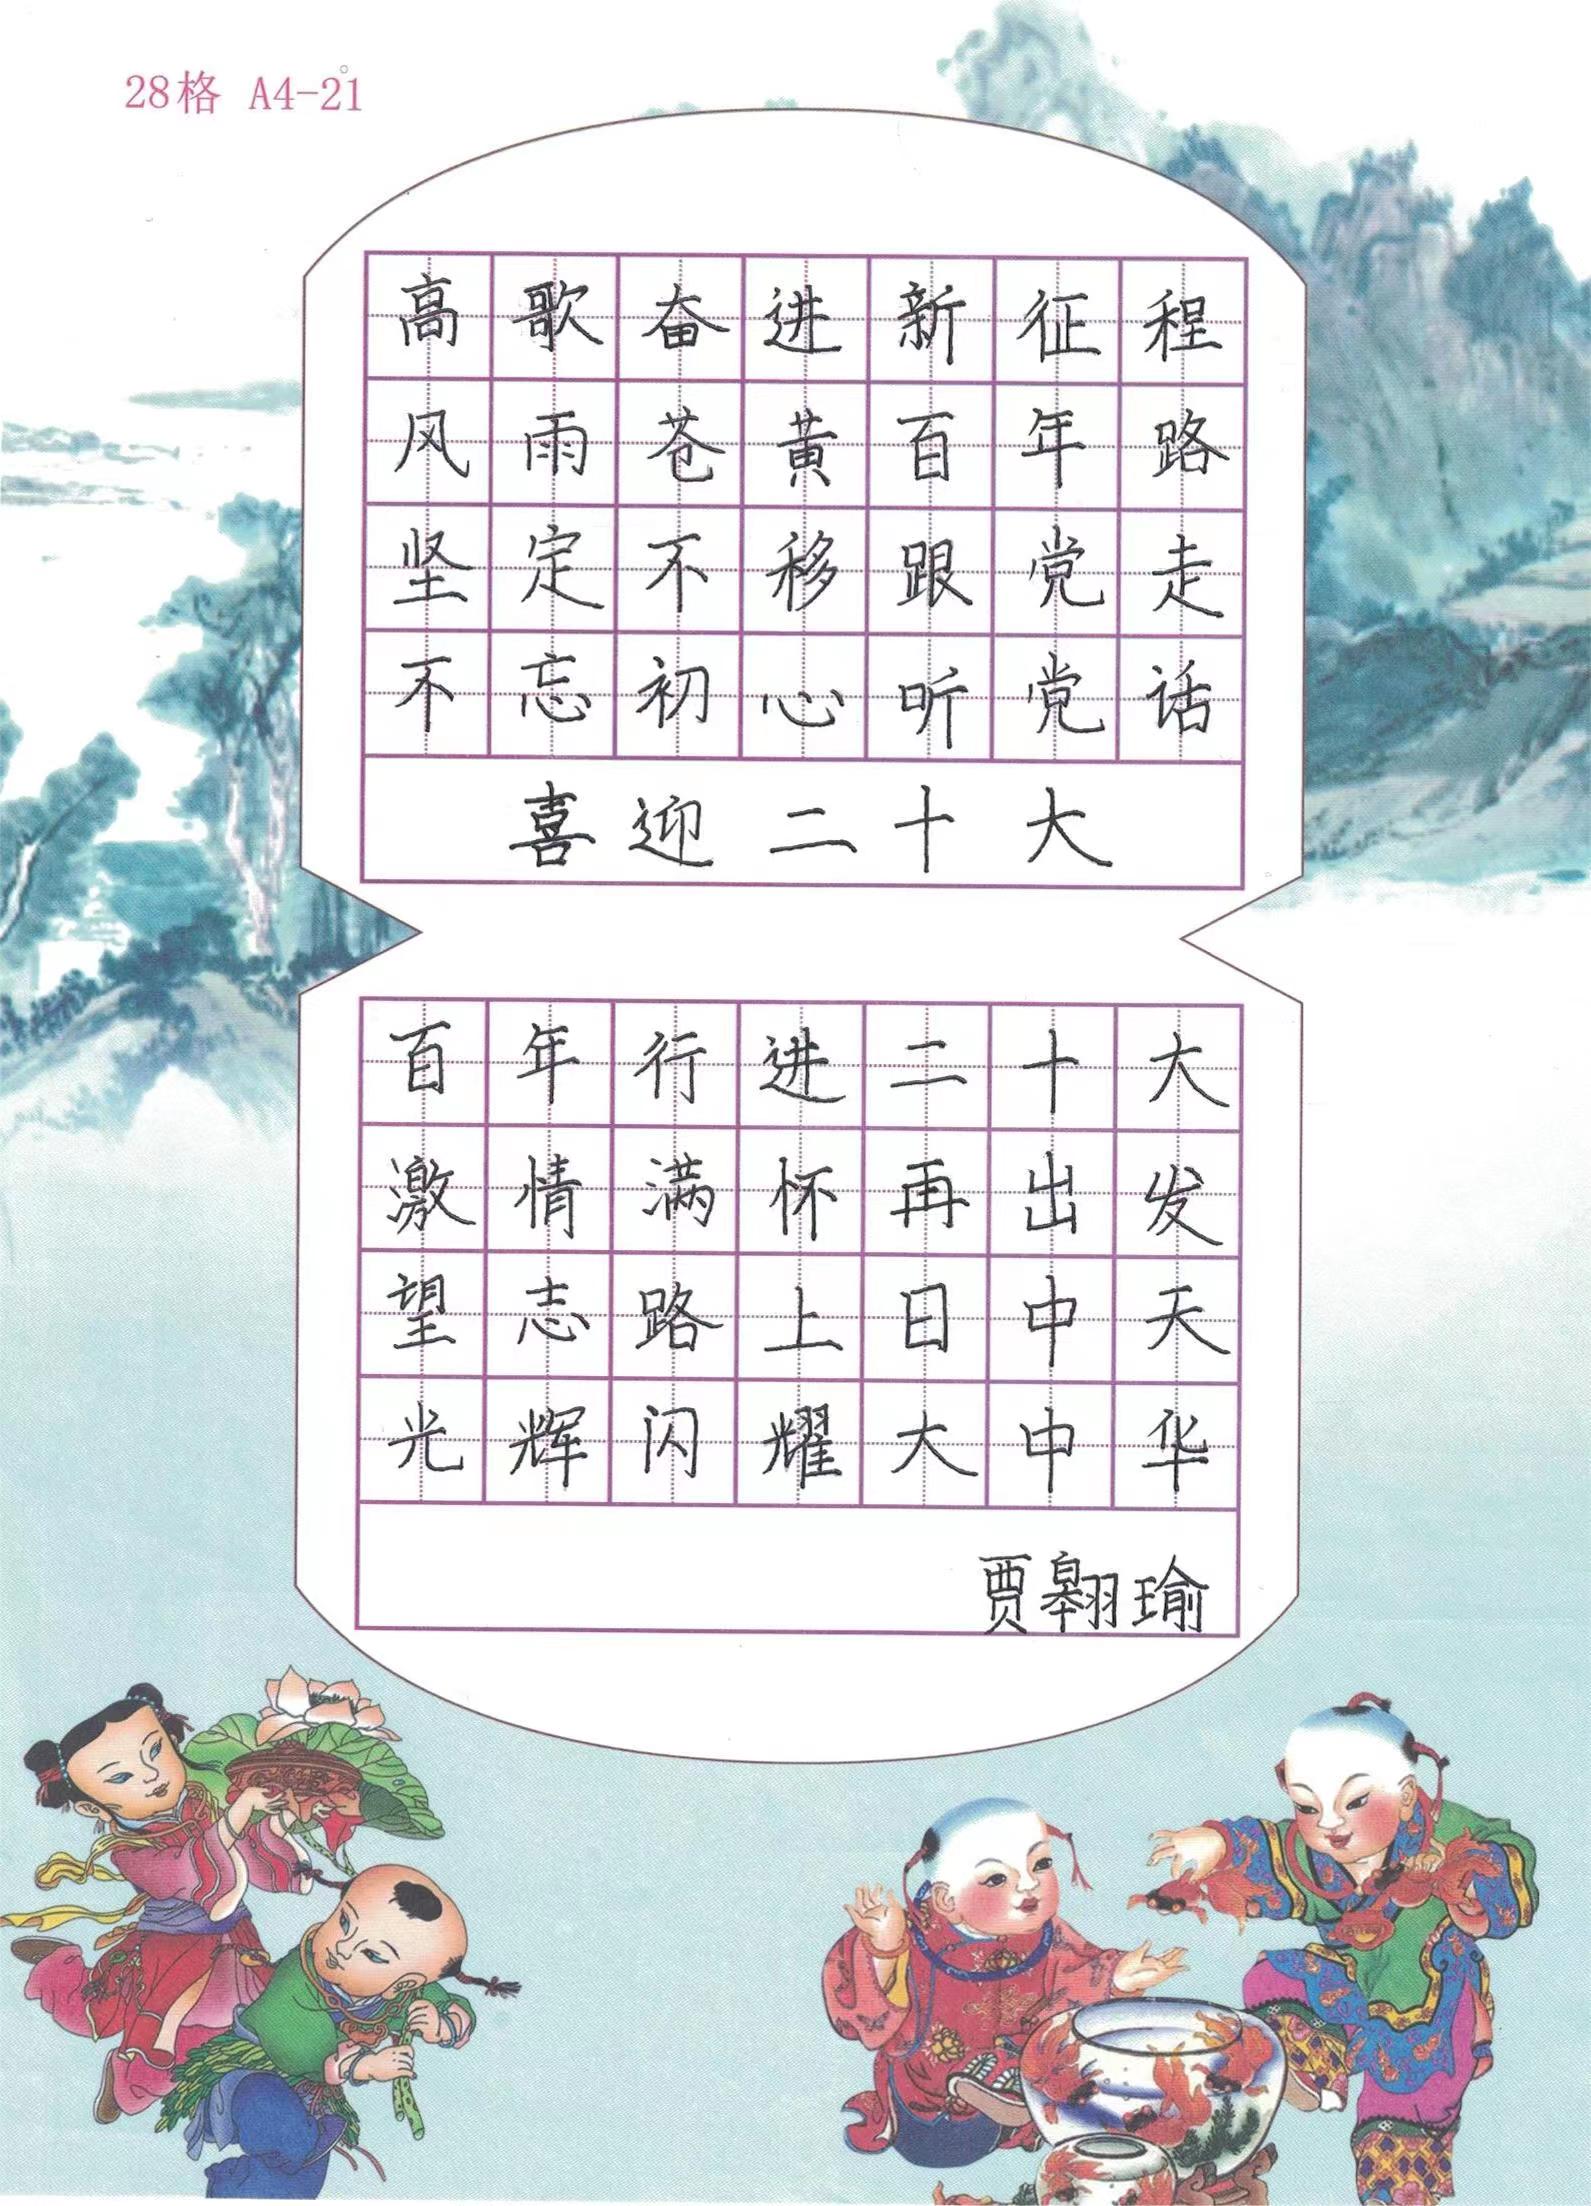 28格 A4-21
高歌奋进新征程
风雨苍黄百年路
坚定不移跟党走
不忘初心听党话
喜迎二十大
百年行进二十大
激情满怀再出发
望志路上日中天
光辉闪耀大中华
贾翱瑜